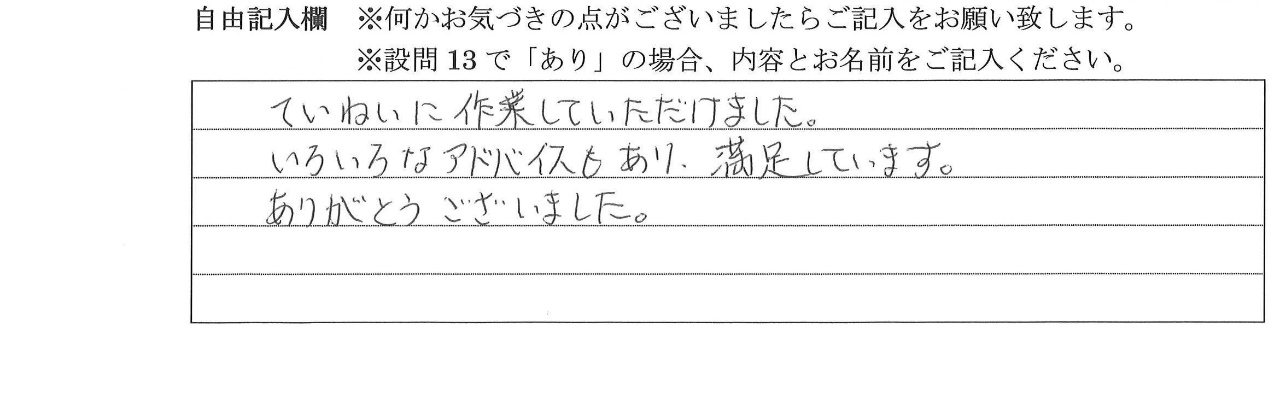 自由記入欄 ※何かお気づきの点がございましたらご記入をお願い致します。
※設問13で「あり」の場合、内容とお名前をご記入ください。
ていねいに作業していただけました。
いろいろなアドバイスもあり、満足しています。
ありがとうございました。